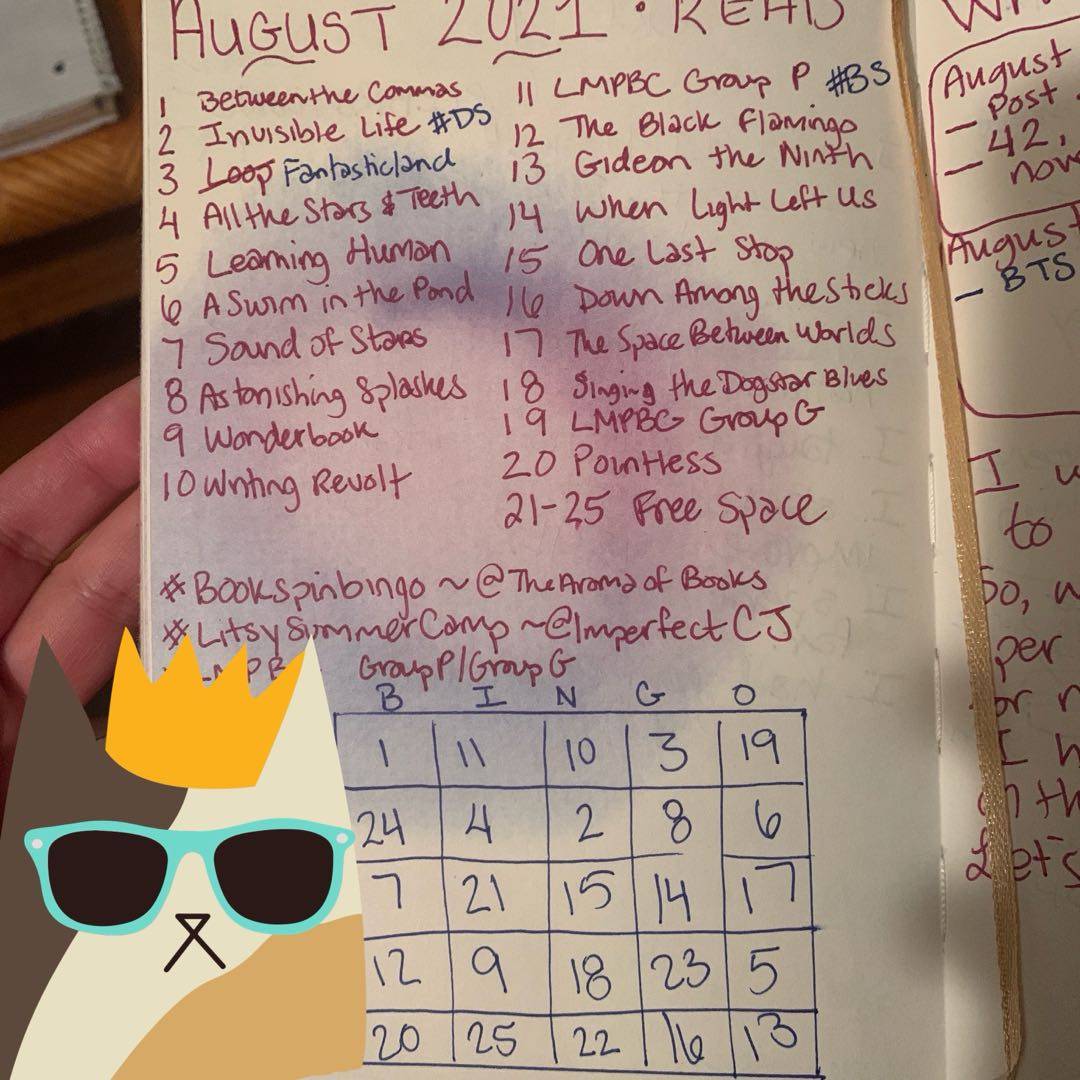 AUGUST 2021 • READS
1 Between the Commas
2 Invisible Life #DS
3 Loop Fantasticland
4 All the Stars & Teeth
5 Learning Human
6 A Swim in the Pond
7 Sound of Stars
8 Astonishing Splashes
9 Wonderbook
10 Writing Revolt
11 LMPBC Group P #BS
12 The Black Flamingo
13 Gideon the Ninth
14 When Light Left Us
15 One Last Stop
16 Down Among the Sticks
17 The Space Between Worlds
18 Singing the Dogstar Blues
19 LMPBC Group G
20 Pointless
21-25 Free Space
#Bookspinbingo ~ @TheAromaofBooks
#LitsySummerCamp ~@ImperfectCJ
Group P/Group G
B I N G O
1 11 10 3 19
24 4 2 8 6
7 21 15 14 17
12 9 18 23 5
20 25 22 16 13
August
- Post
- 42,
nov
August
- BTS
I
to
So,
per
or
I h
on th
Let's